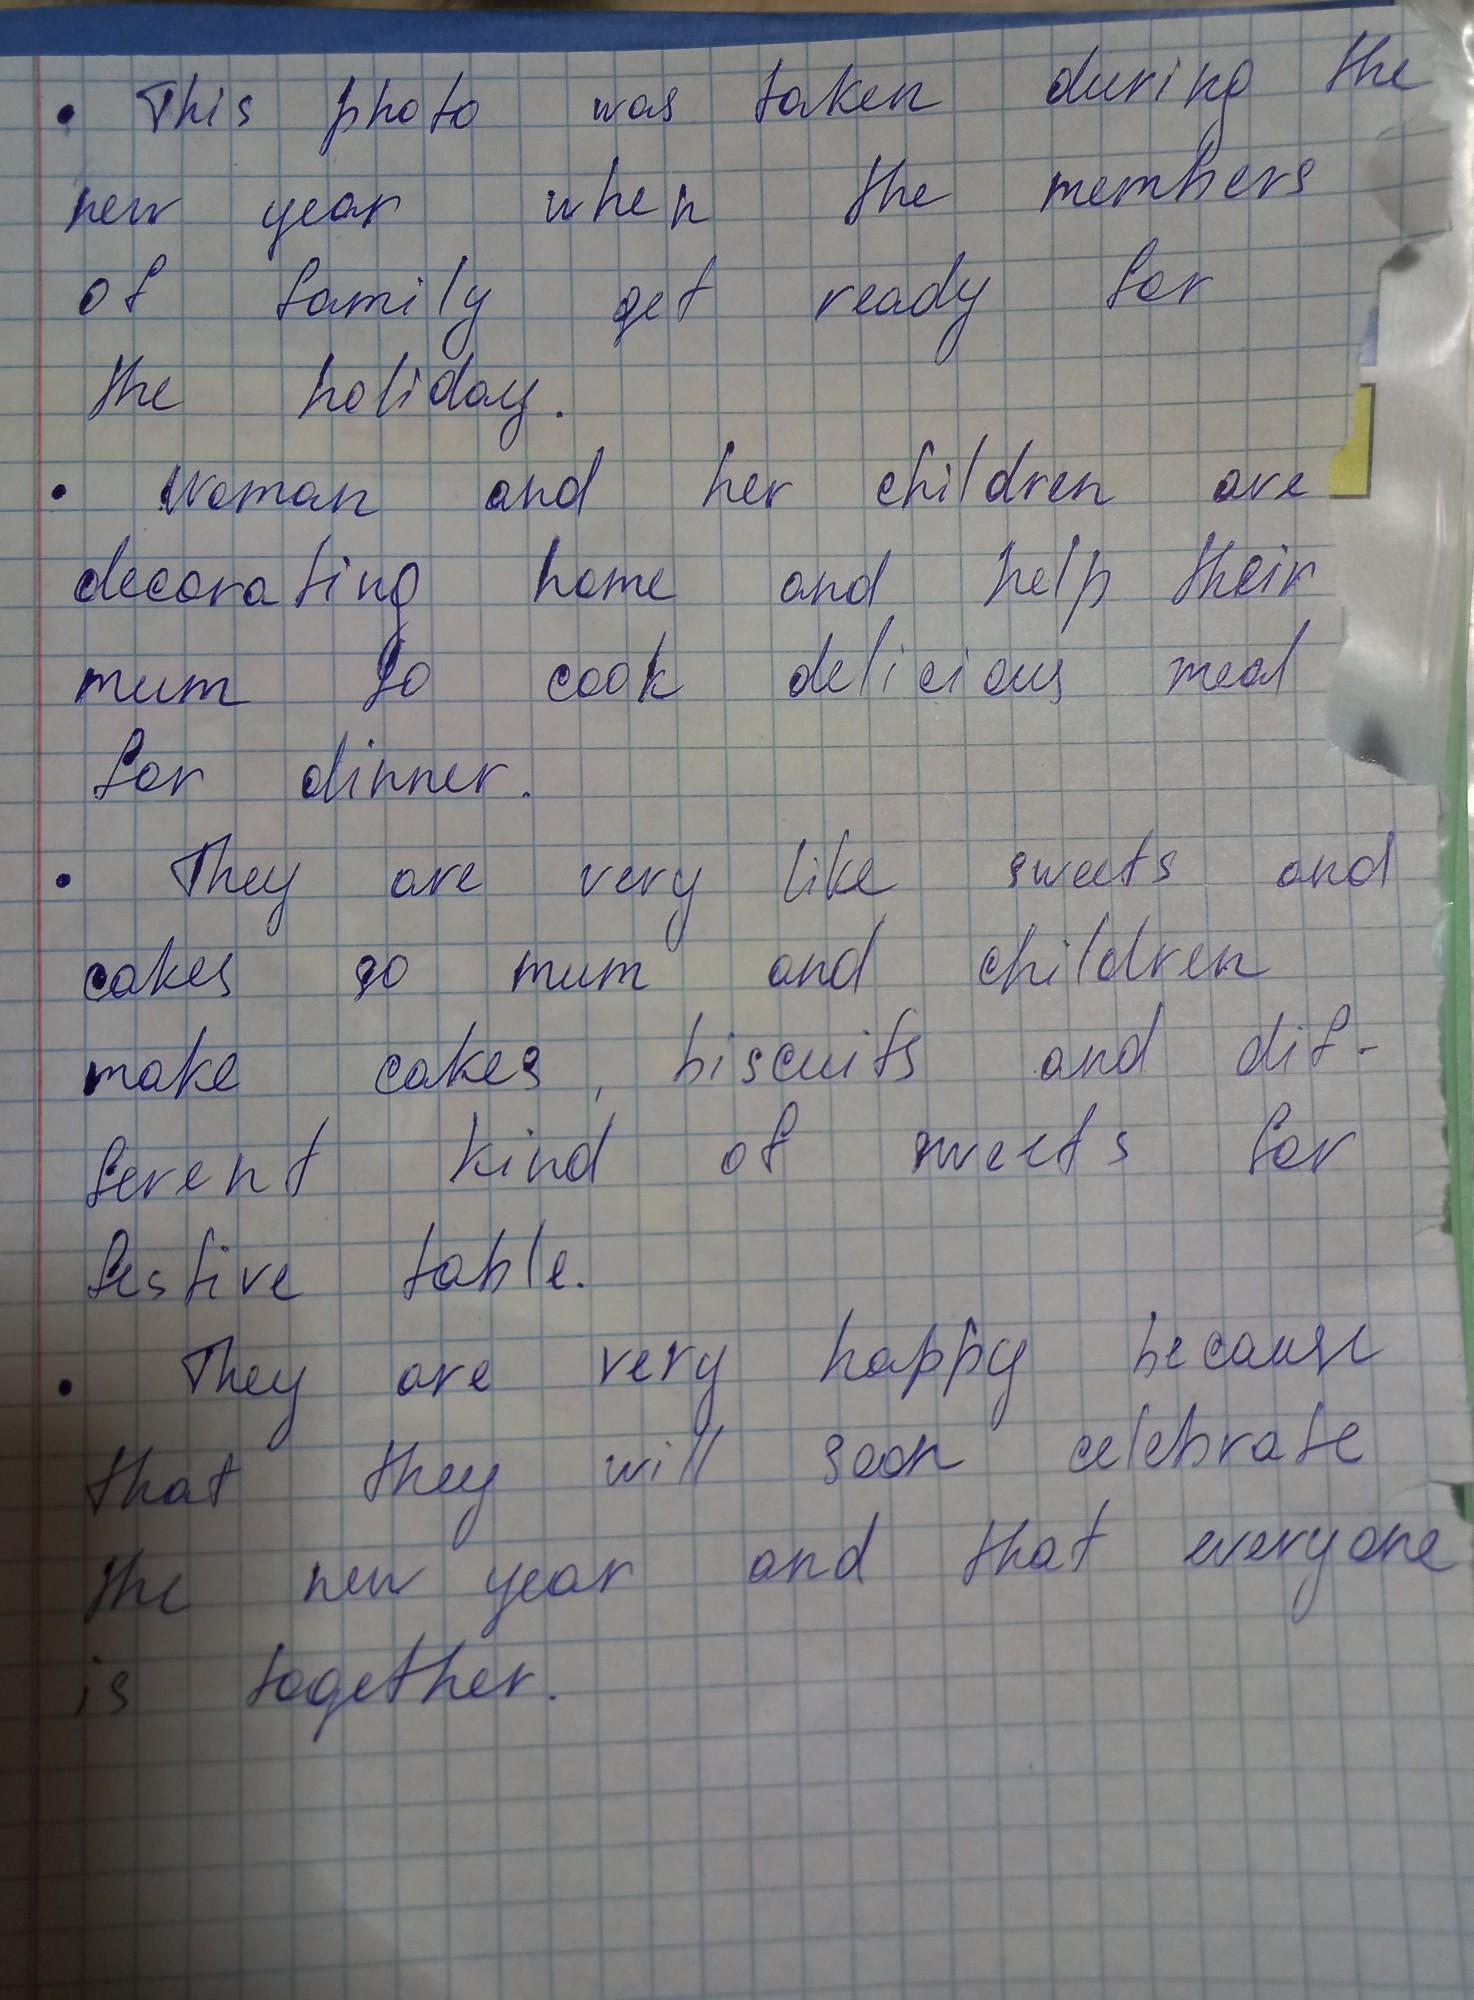 • This photo was taken during the
new year when the members
of family get ready for
the holiday.
• Woman and her children are
decorating home and help their
mum to cook delicious meal
for dinner.
• They are very like sweets and
cakes so mum and children
make cakes, biscuits and dif-
ferent kind of sweets for
festive table.
• They are very happy because
that they will soon celebrate
the new year and that everyone
is together.